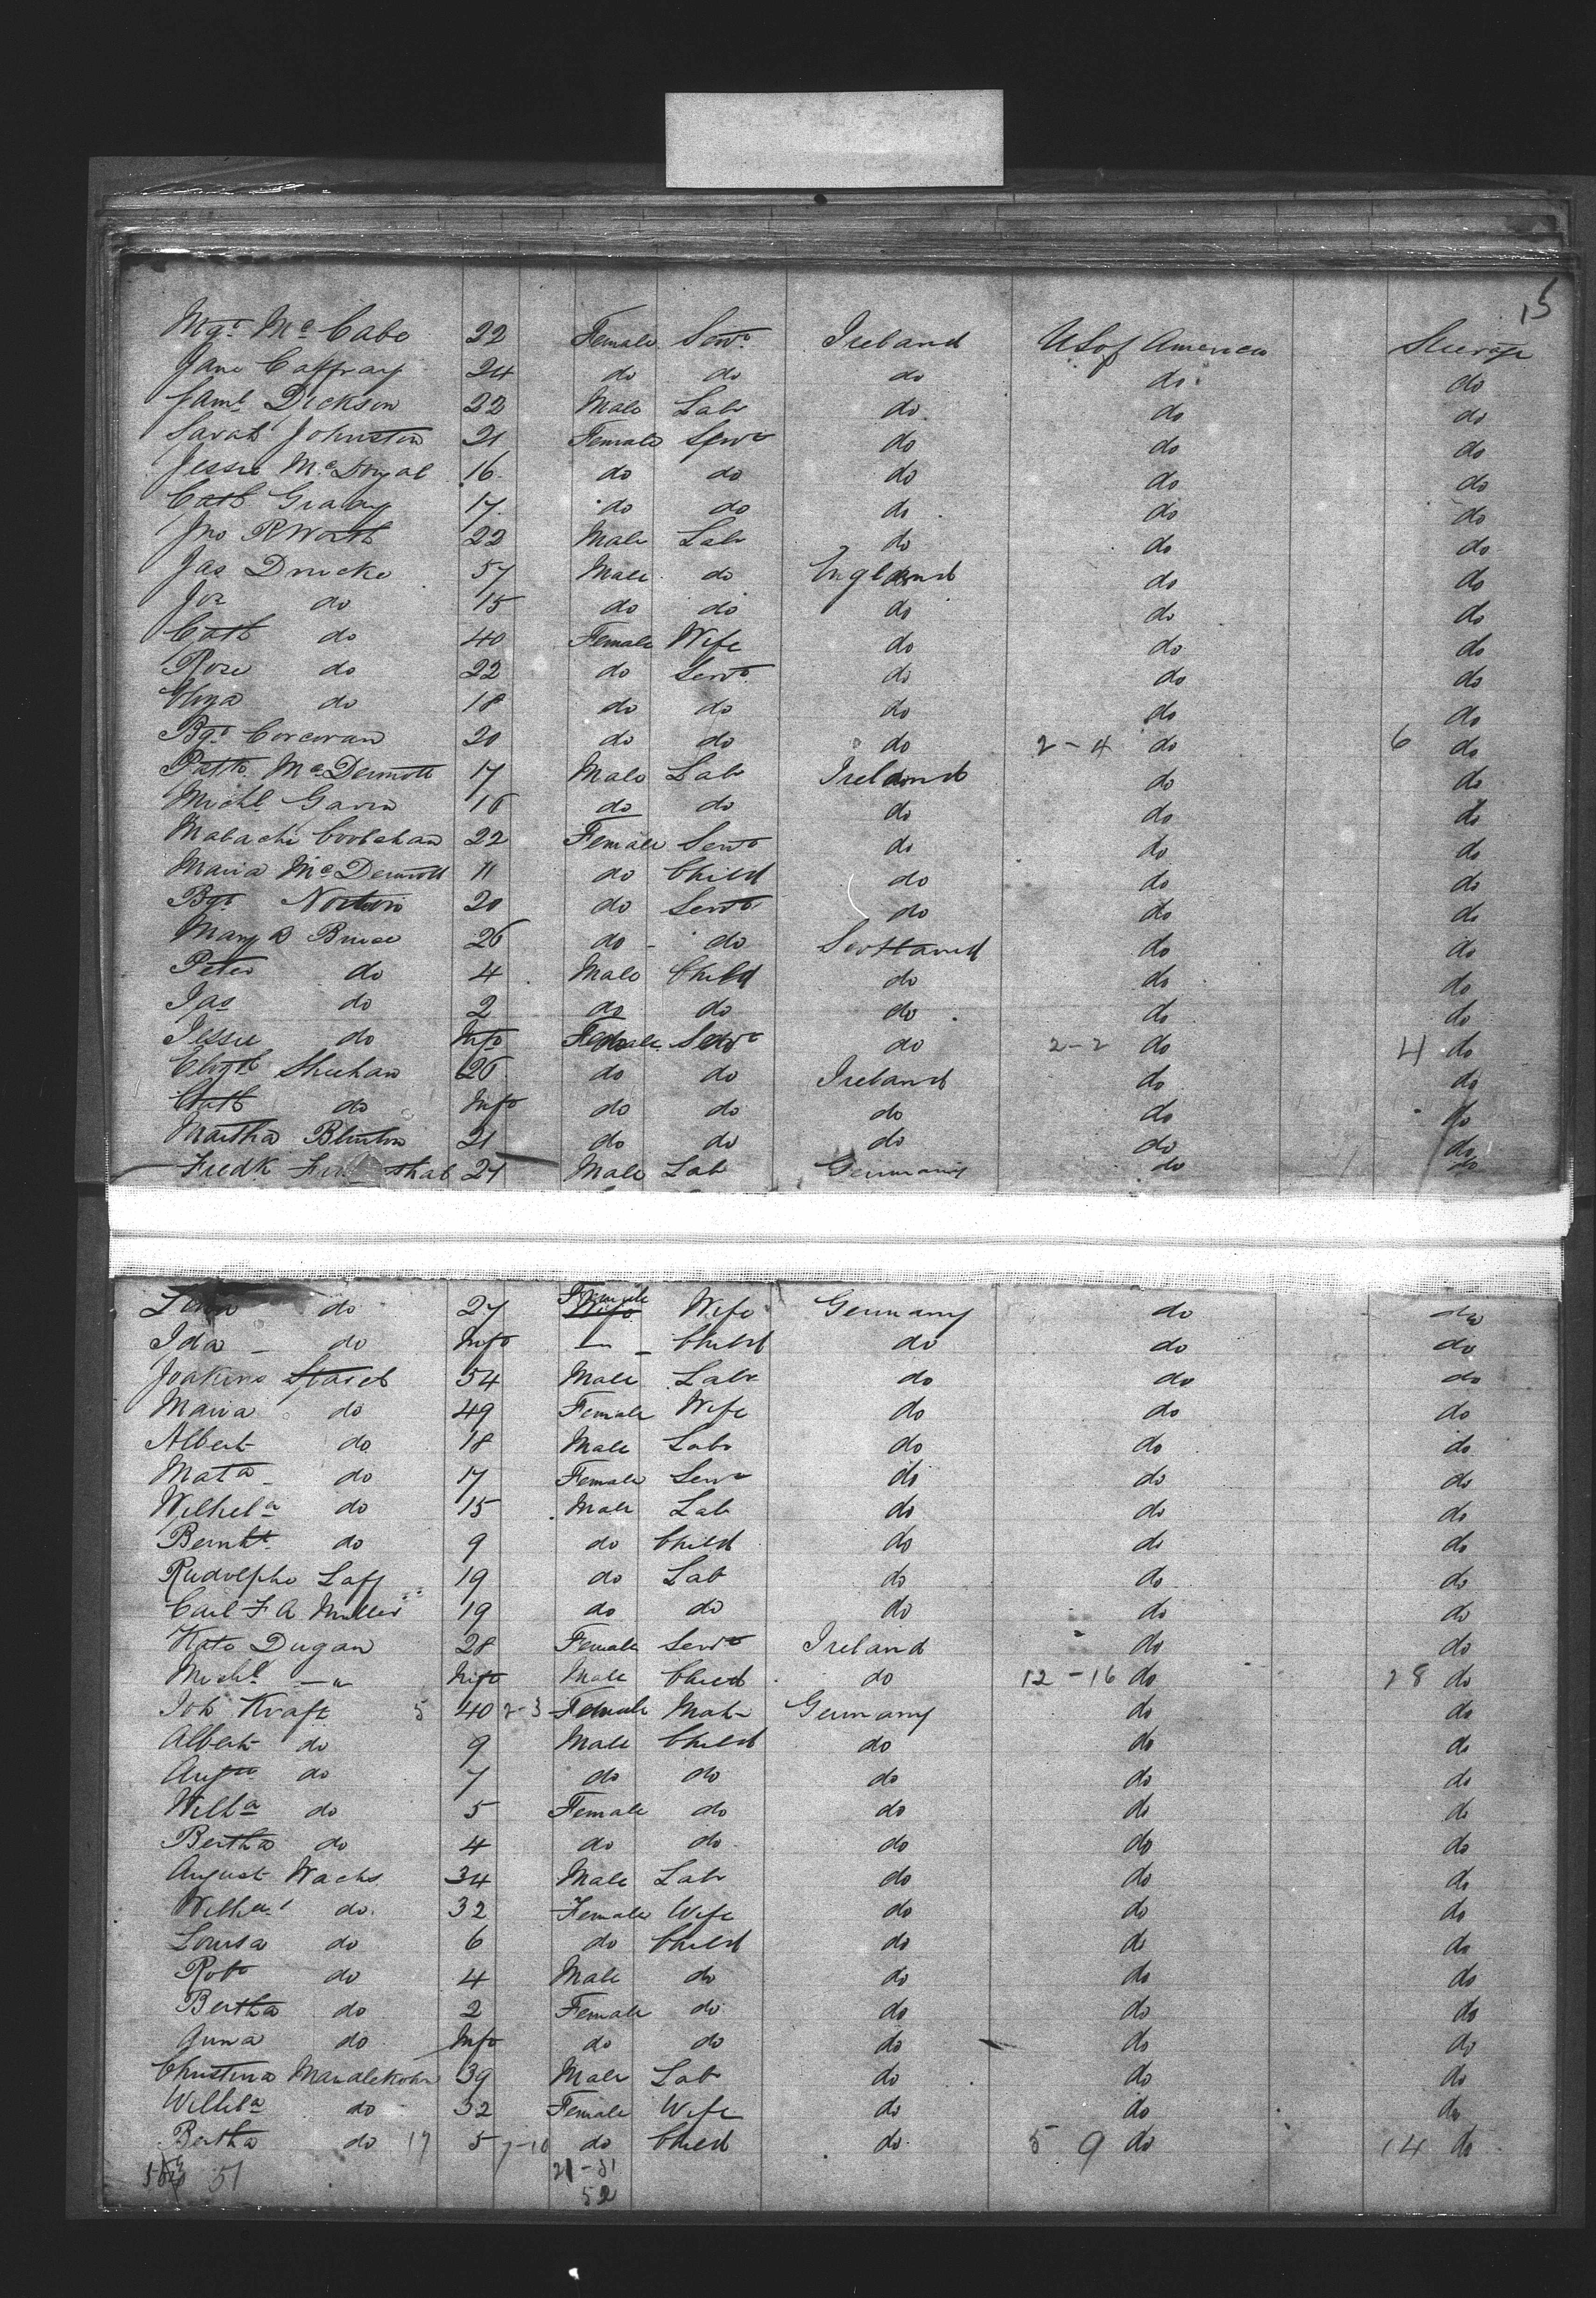 15
Mgt McCabe 22 Female Servt Ireland U S of America Steerage
Jane Caffray 24 do do do do do
Saml Dickson 22 Male Labr do do do
Sarah Johnston 21 Female Servt do do do
Jessie McDougal 16 do do do do do
Cath 17 do do do do do
Jno R Worth 22 Male Labr do do do
Jas 57 Male do England do do
Jos do 15 do do do do do
Cath do 40 Female Wife do do do
Rose do 22 do Servt do do do
Eliza do 18 do do do do do
Bgt Corcoran 20 do do do 2-4 do 6 do
Patk McDermott 17 Male Labr Ireland do do
Michl Gavin 16 do do do do do
Malachi 22 Female Servt do do do
Maria McDermott 11 do Child do do do
Bgt Norton 20 do Servt do do do
Mary B Bruce 26 do do Scotland do do
Peter do 4 Male Child do do do
Jas do 2 do do do do do
Jessie do Inft Female do 2-2 do 4 do
Elizth Sheehan 26 do do Ireland do do
Cath do Inft do do do do do
Martha 21 do do do do do
Fredk 27 Male Lab Germany do do
do 27 Female Wife Germany do do
Ida do Inft Child do do do
Joakims 54 Male Labr do do do
Maria do 49 Female Wife do do do
Albert do 18 Male Labr do do do
Mata do 17 Female Servt do do do
Wilhela do 15 Male Lab do do do
Bernht do 9 do Child do do do
Rudolphe Laff 19 do Lab do do do
Carl F A Muller 19 do do do do do
Kate Dugan 28 Female Servt Ireland do do
Michl " Inft Male Child do 12-16 do 28 do
Joh Kraft 5 40 2-3 Female Matr Germany do do
Albert do 9 Male Child do do do
Augte do 7 do do do do do
Willa do 5 Female do do do do
Bertha do 4 do do do do do
August Wachs 34 Male Labr do do do
Wilhel do 32 Female Wife do do do
Louisa do 6 do Child do do do
Robt do 4 Male do do do do
Bertha do 2 Female do do do do
Anna do Inft do do do do do
Christina 39 Male Lab do do do
Wilhla do 32 Female Wife do do do
Bertha do 17 5 7-10 do Child do 5 9 do 14 do
51 21-31
52